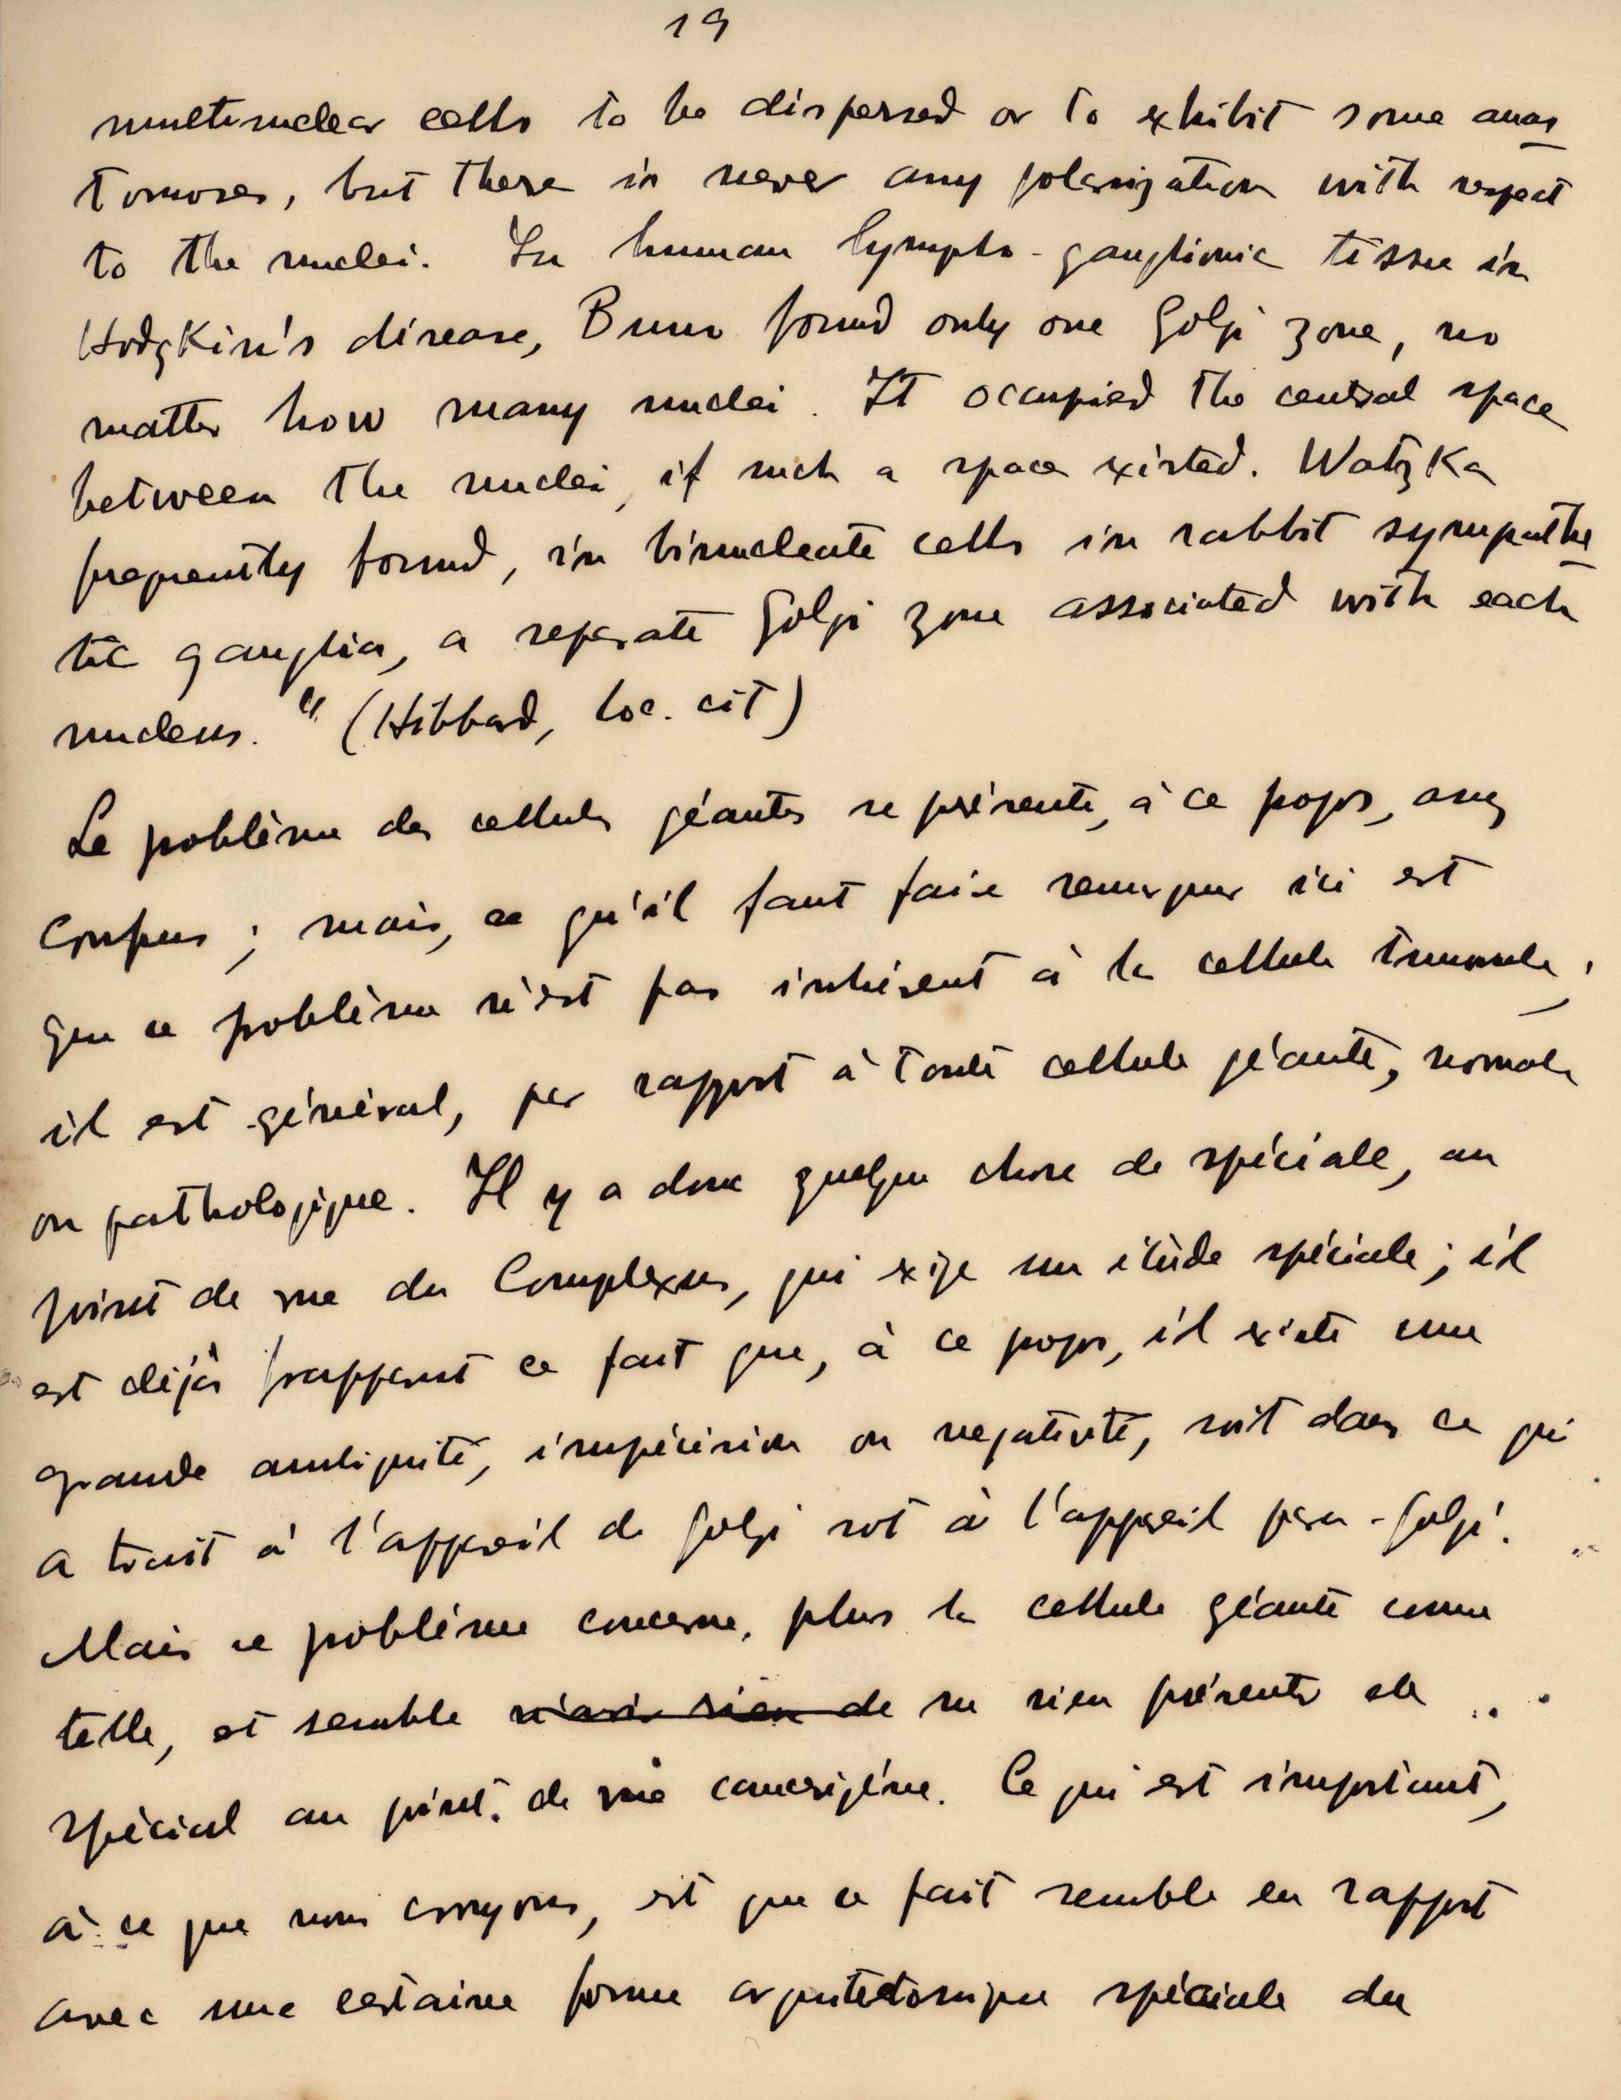 19
multinuclear cells to be dispersed or to exhibit some anas
tomoses, but there is never any polarization with respect
to the nuclei. In human lympho-ganglionic tissue in
Hodgkin's disease, Bruno found only one Golgi zone, no
matter how many nuclei. It occupied the central space
between the nuclei, if such a space existed. Watzka
frequently found, in binucleate cells in rabbit sympathe
tic ganglia, a separate Golgi zone associated with each
nucleus." (Hibbard, loc. cit)
Le problème des cellules géantes se présente, à ce propos, assez
confus ; mais, ce qu'il faut faire remarquer ici est
que ce problème n'est pas inhérent à la cellule tumorale;
il est général, par rapport à toute cellule géante, normale
ou pathologique. Il y a donc quelque chose de spéciale, au
point de vue du Complexus, qui exige une étude spéciale; il
est déjà frappant ce fait que, à ce propos, il existe une
grande ambiguité, imprécision ou negativité, soit dans ce qui
a trait à l'appareil de Golgi soit à l'appareil para-Golgi.
Mais ce problème concerne, plus la cellule géante comme
telle, et semble de ne rien présenter de
spécial au point de vue cancerigène. Ce qui est important,
à ce que nous croyons, est que ce fait semble en rapport
avec une certaine forme arquitectonique spéciale du